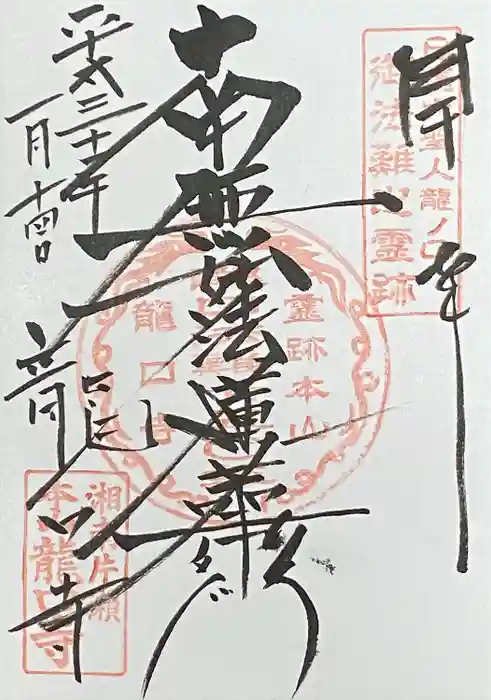 日蓮聖人龍ノ口
御法難之靈跡
南無妙法蓮華経
靈跡本山
龍口寺
平成三十年
一月十四日
龍口寺
湘南片瀬
龍口寺